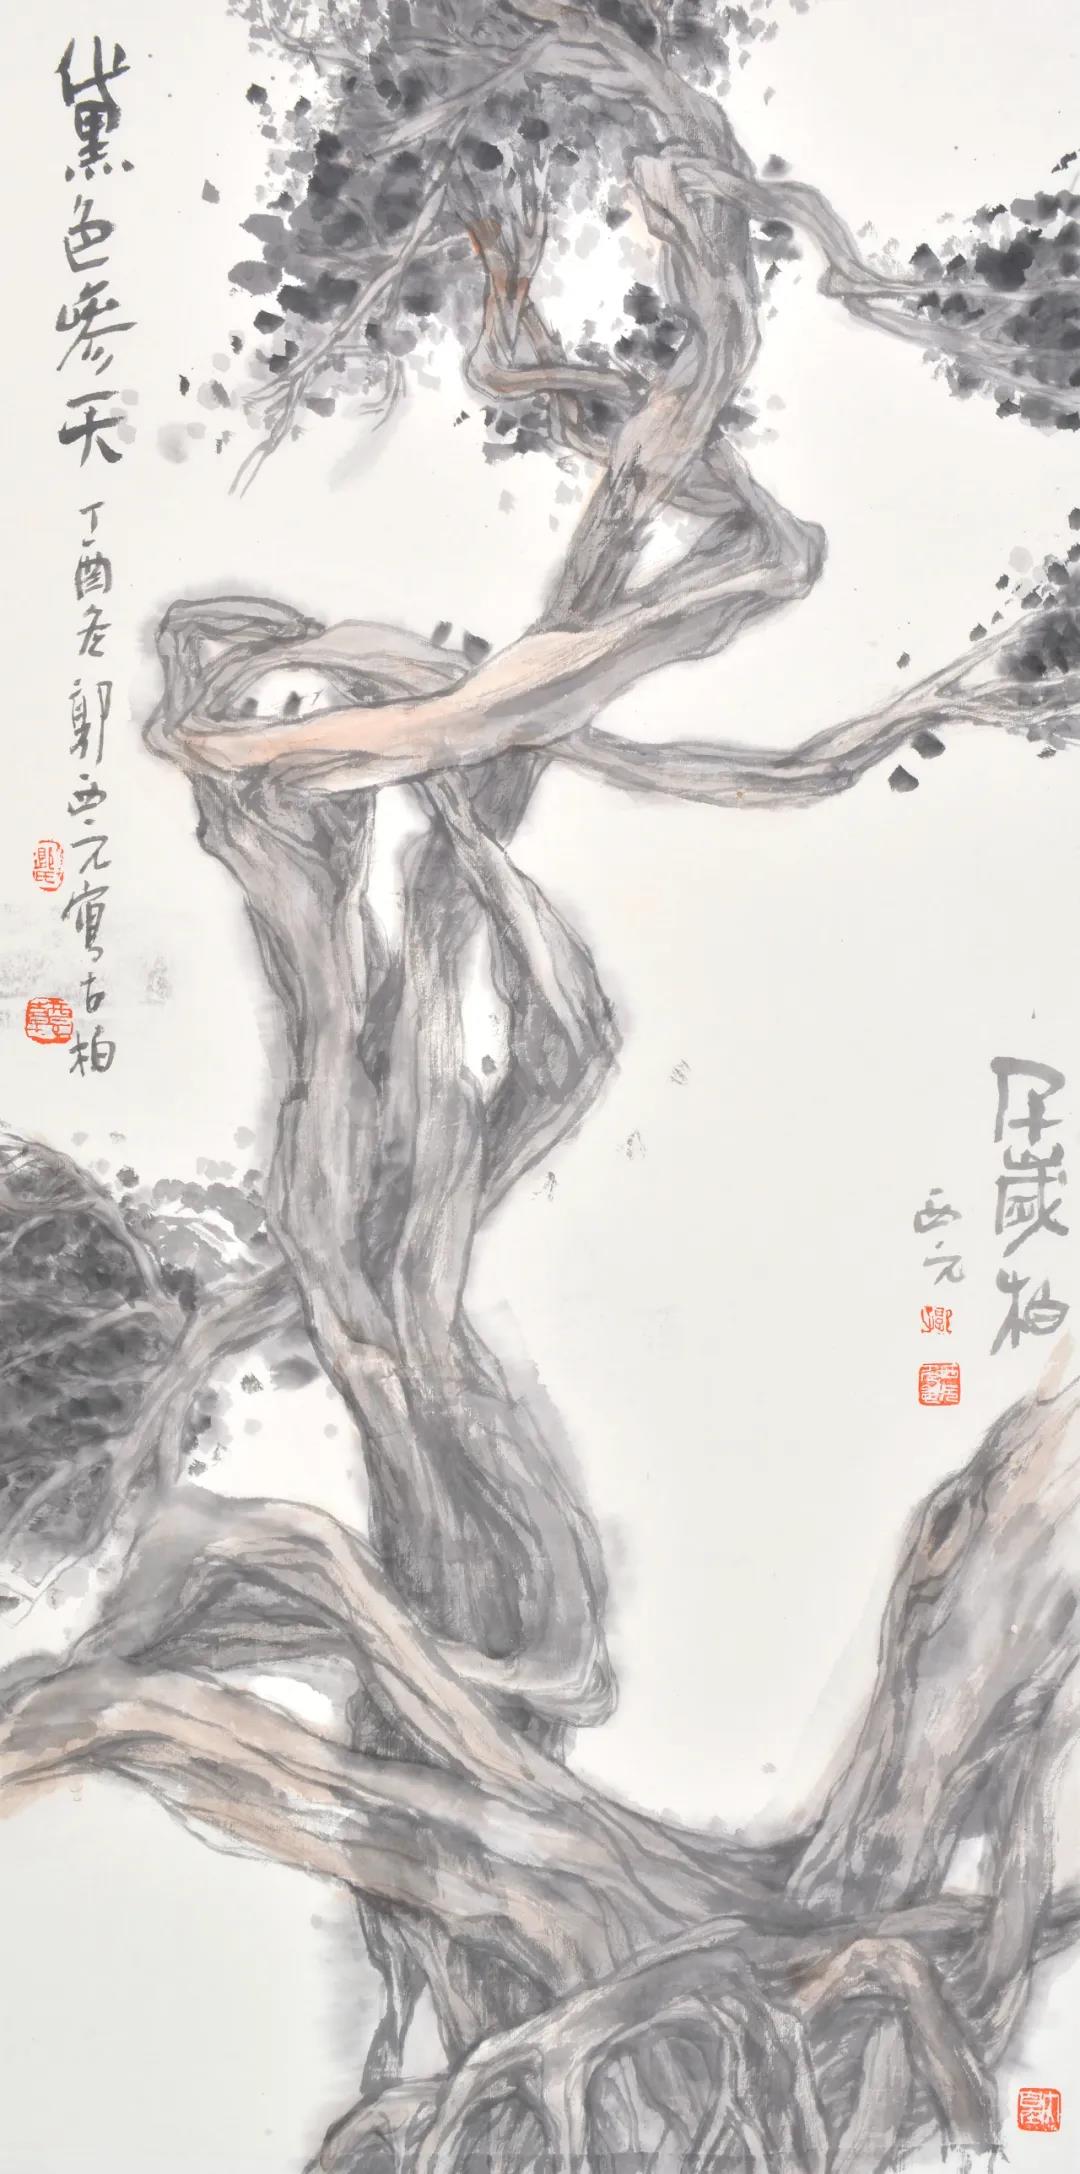 千歲柏
西元
黛色參天 丁酉冬 郭西元寫古柏